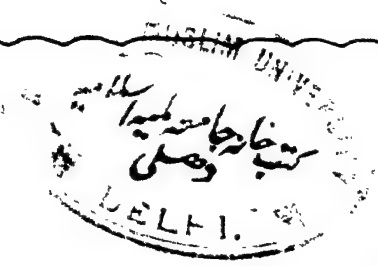 MUSLIM UNIVE
کتب خانہ جامعہ ملیہ اسلامیہ
دھلی
DELHI.